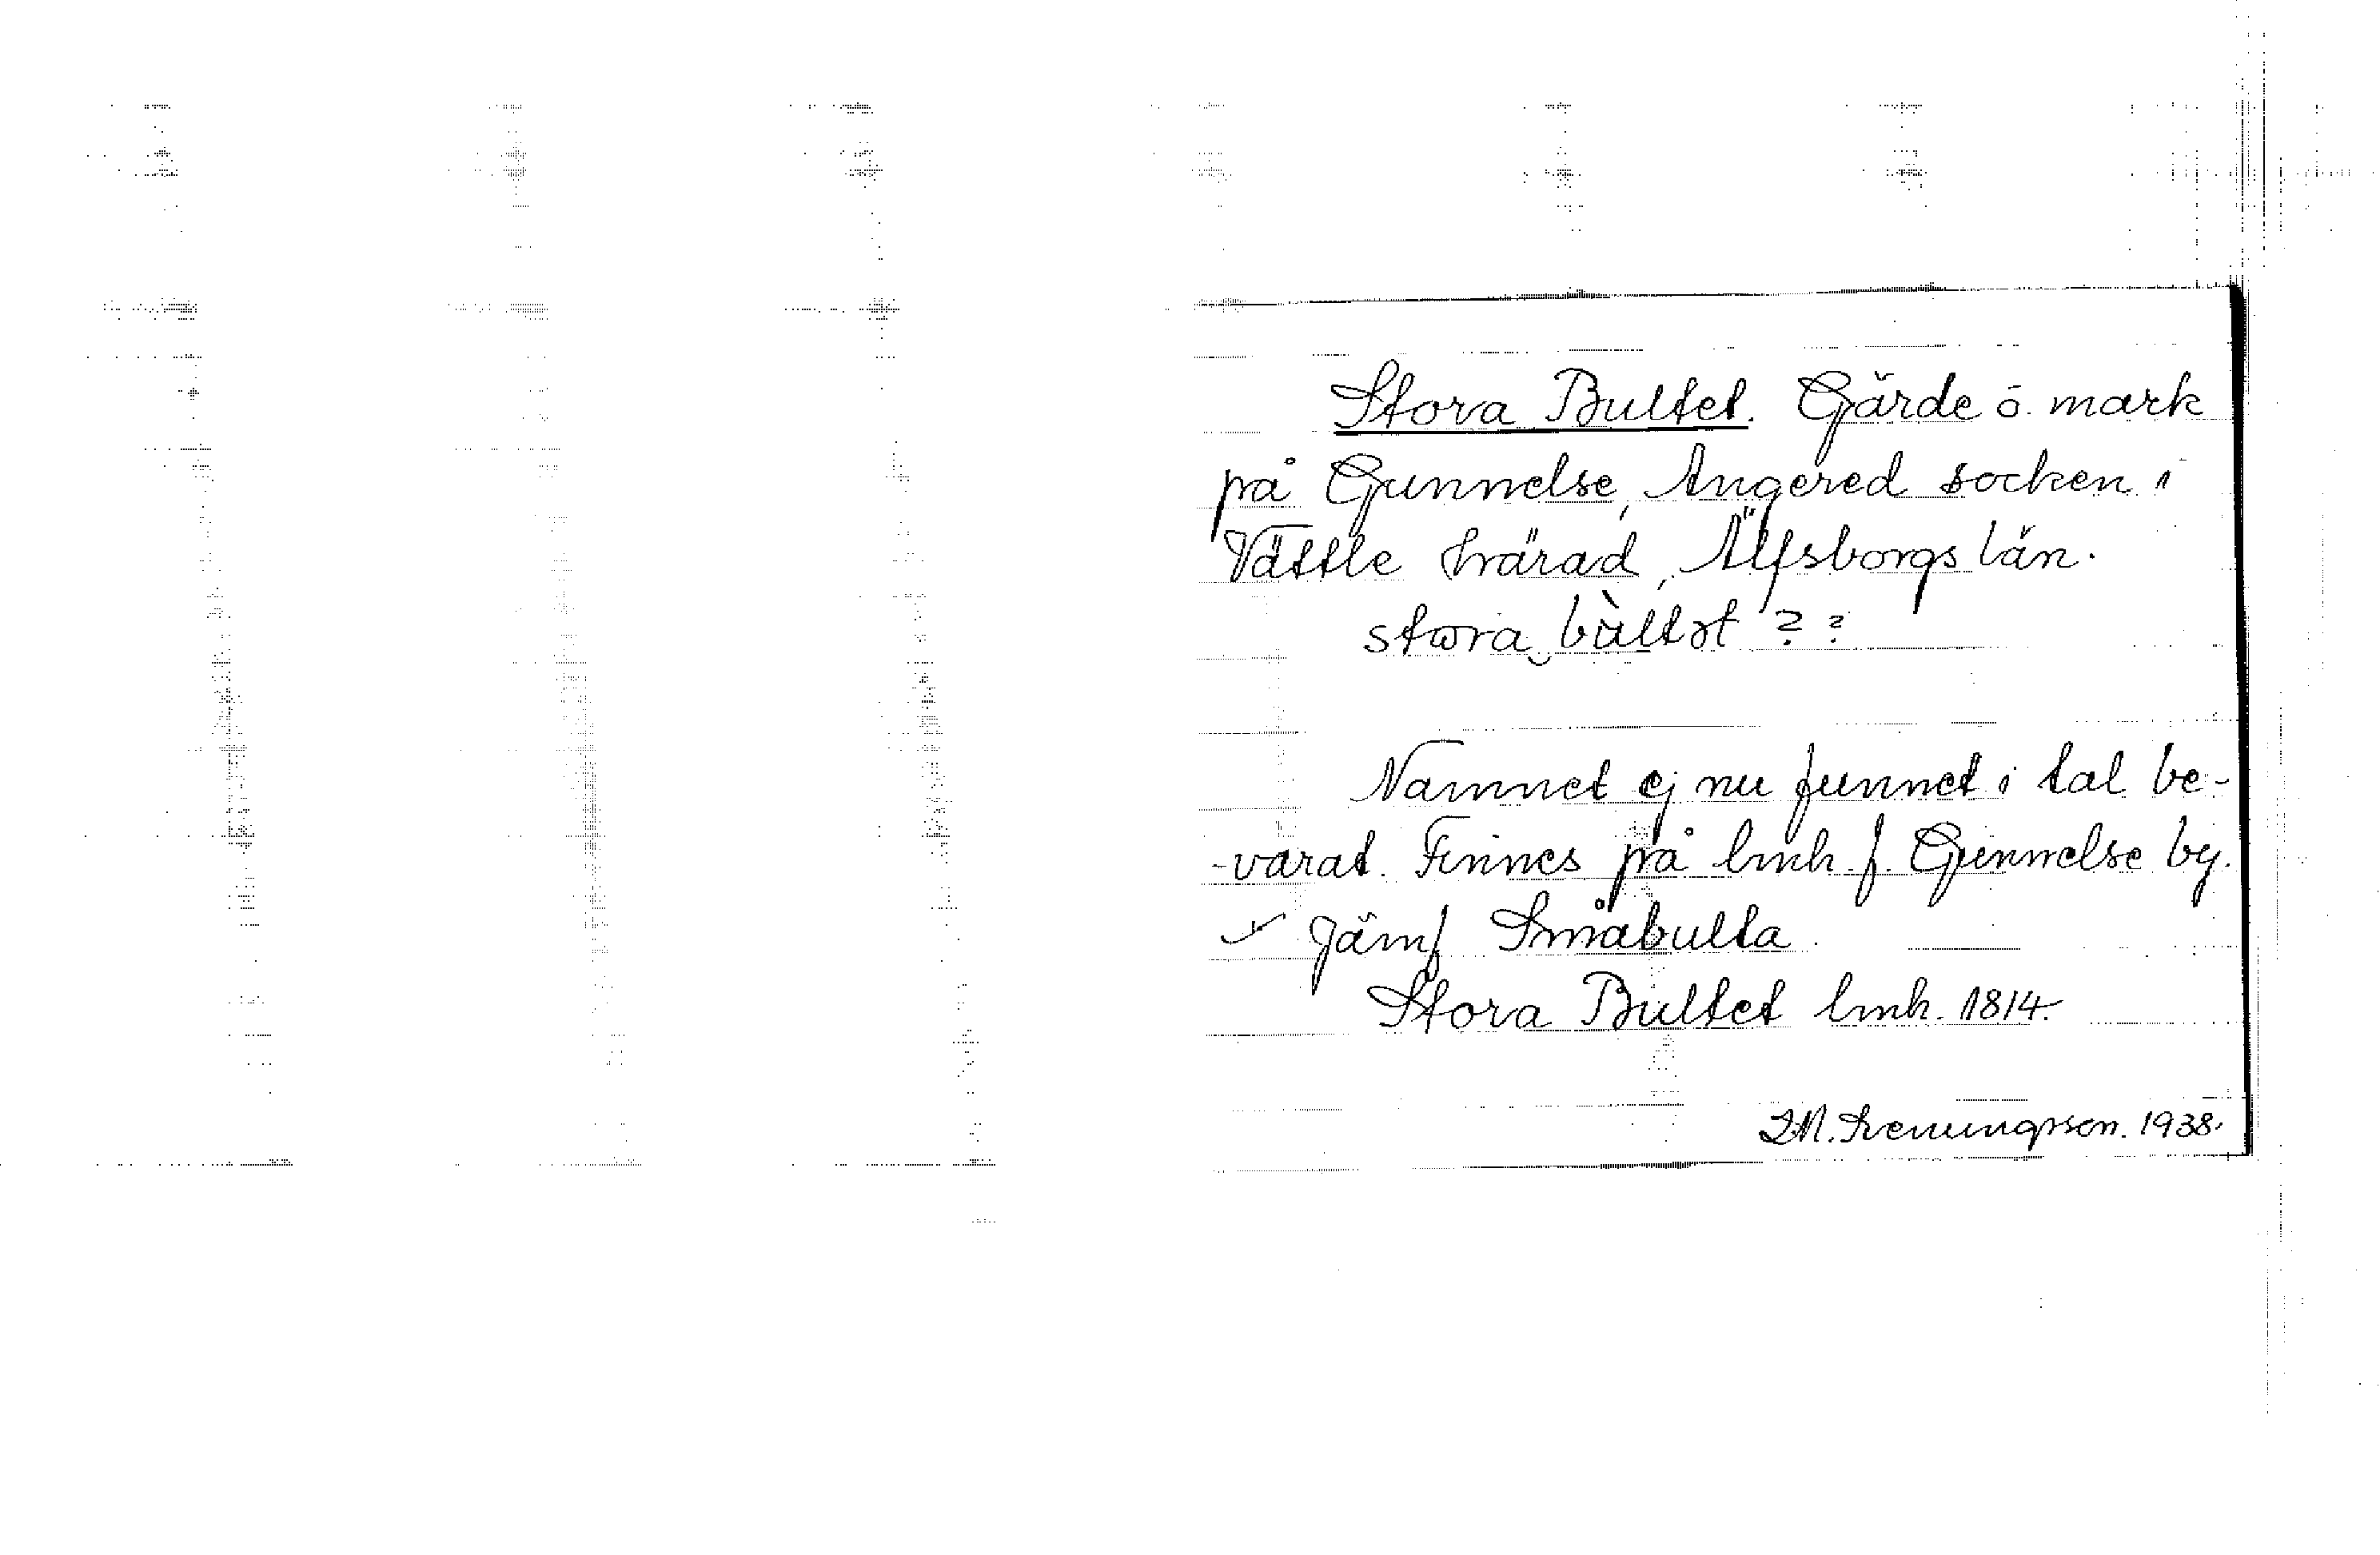 Stora Bultet. Gärde o. mark
på Gunnelse, Angered socken i
Vättle härad, Älfsborgs län.
stωra‿bùltət ? ?
Namnet ej nu funnet i tal be-
-varat. Finnes på lmh. f. Gunnelse by.
Jämf Småbulta.
Stora Bultet lmh. 1814.
1938.